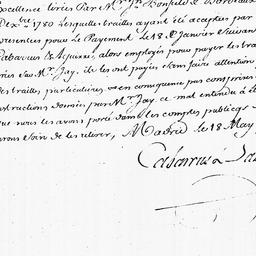 Excellence tirées Par Mr. Jn. Bonfield de Bordeaux
Dexbre 1780 Lesquelles traites ayant été acceptées par
presentées pour le Payement le 18. Janvier suivan
Cabarrus & Aguirre, alors employés pour payer les trai
ées sur Mr. Jay, ils les ont payés sans faire attention
es traittes particulières et en consequence pas comprises
structions données par Mr. Jay, ce mal entendu à le
que nous les avons porté dans les comptes publics
avons soin de les retirer, Madrid le 18 May
Cabarrus &